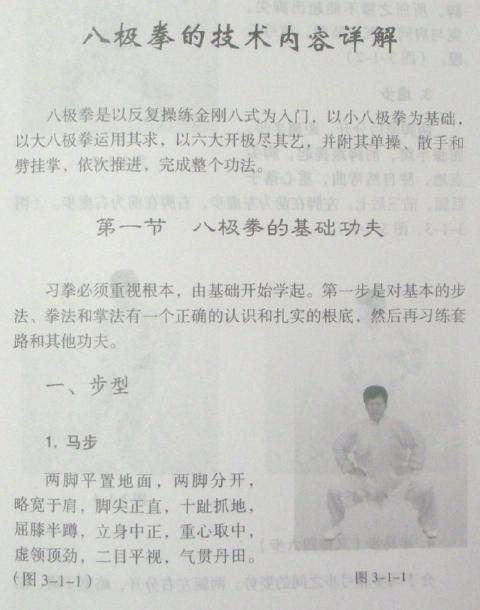 八极拳的技术内容详解
八极拳是以反复操练金刚八式为入门，以小八极拳为基础，
以大八极拳运用其求，以六大开极尽其艺，并附其单操、散手和
劈挂掌，依次推进，完成整个功法。
第一节 八极拳的基础功夫
习拳必须重视根本，由基础开始学起。第一步是对基本的步
法、拳法和掌法有一个正确的认识和扎实的根底，然后再习练套
路和其他功夫。
一、步型
1. 马步
两脚平置地面，两脚分开，
略宽于肩，脚尖正直，十趾抓地，
屈膝半蹲，立身中正，重心取中，
虚领顶劲，二目平视，气贯丹田。
（图 3-1-1）
图 3-1-1